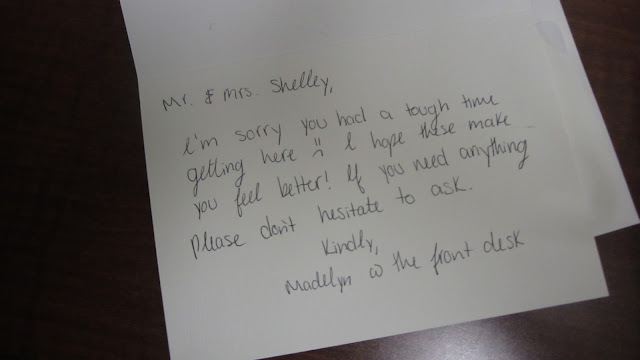 Mr. & Mrs. Shelley,
I'm sorry you had a tough time
getting here :( I hope these make
you feel better! If you need anything
Please don't hesitate to ask.
Kindly,
Madelyn @ the front desk